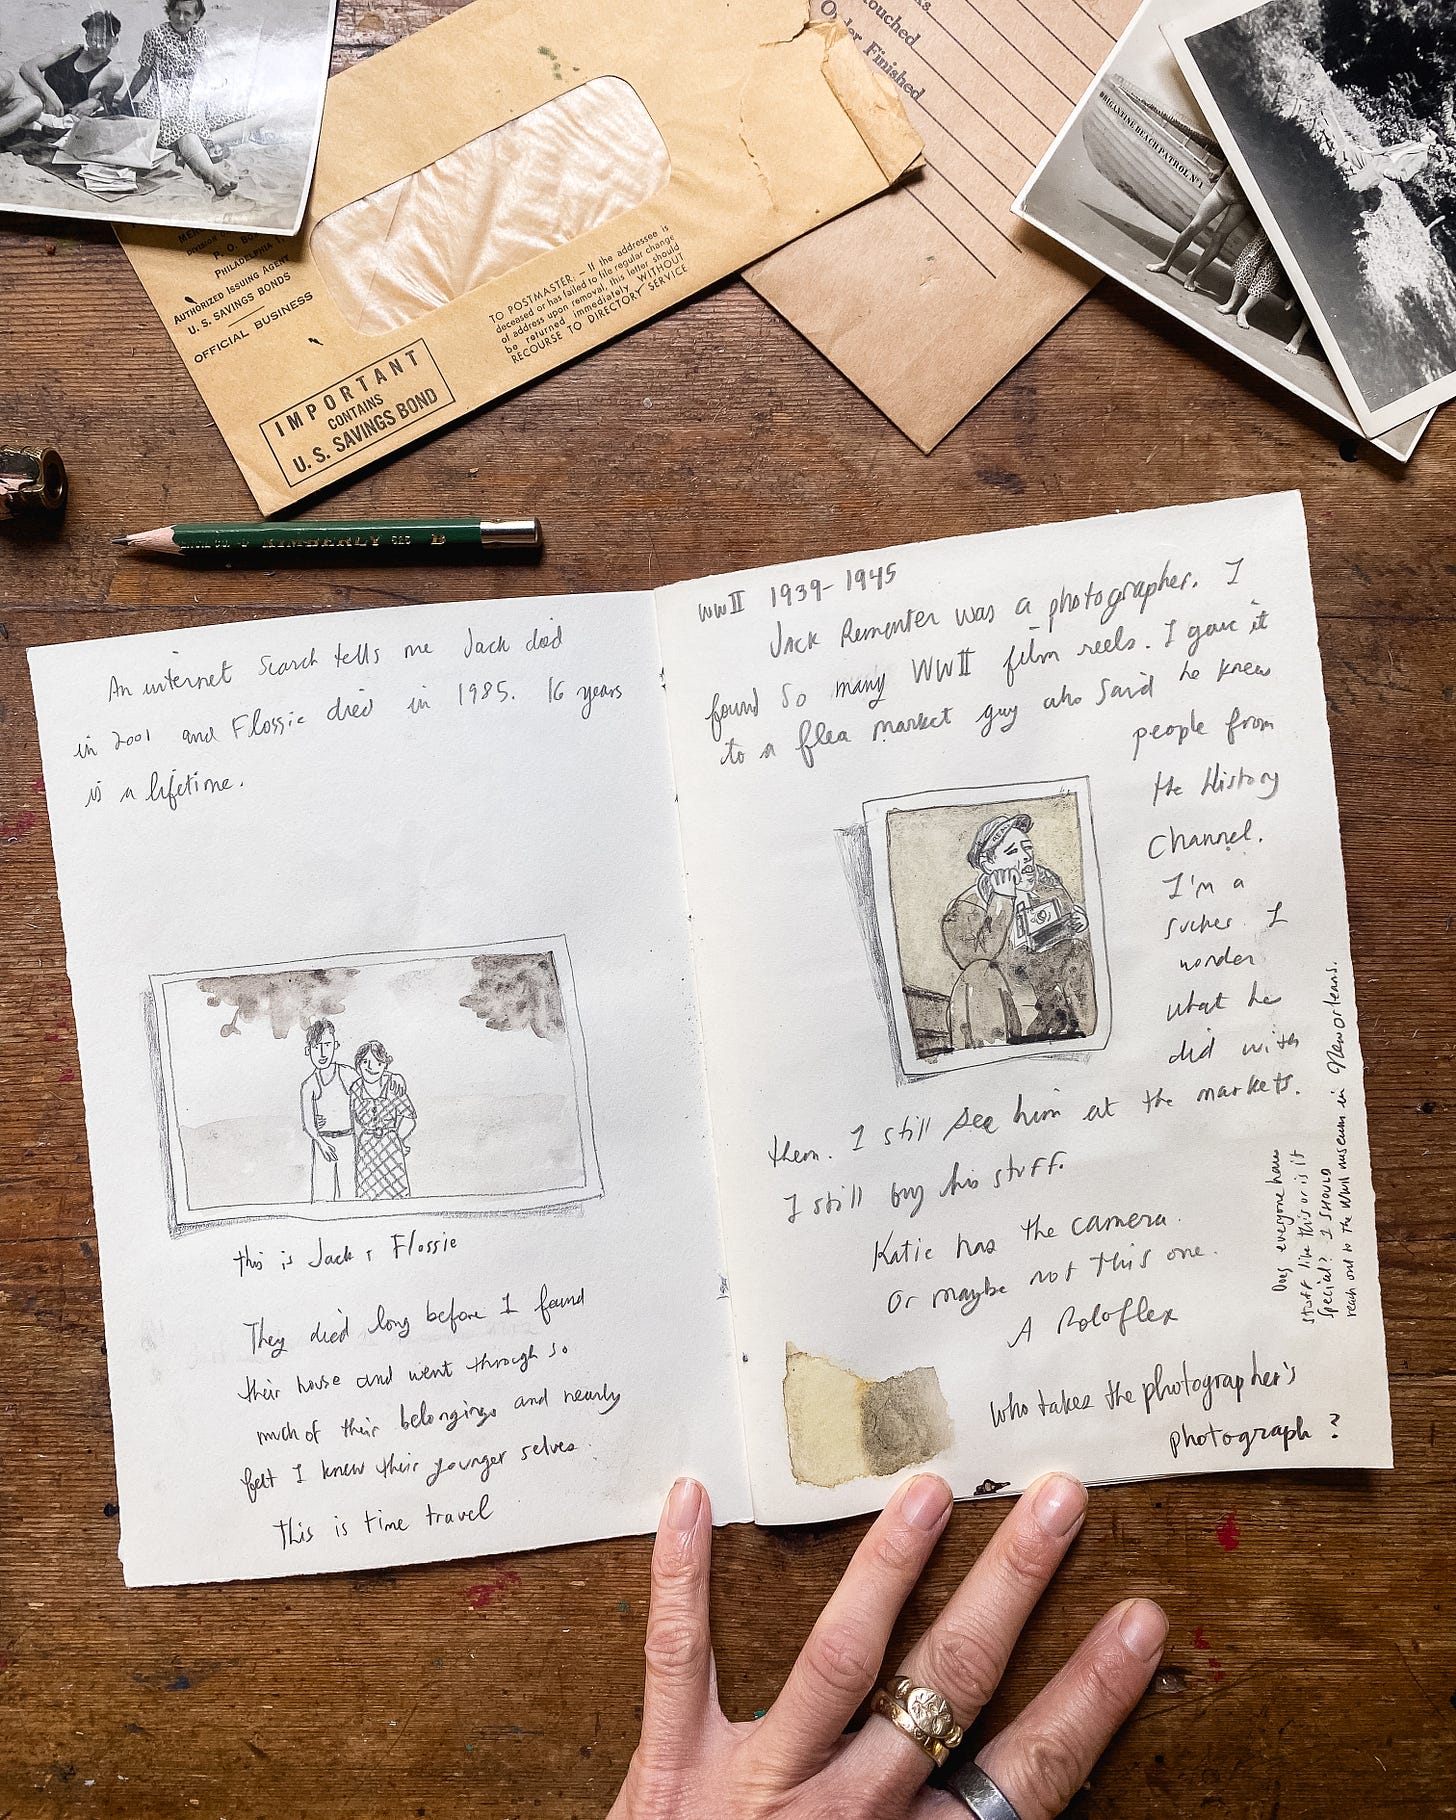 ks.
touched
Order Finished
BRIGANTINE BEACH PATROL Nº1
DIVISION
P. O. BO
PHILADELPHIA
AUTHORIZED ISSUING AGENT
U. S. SAVINGS BONDS
OFFICIAL BUSINESS
TO POSTMASTER. – If the addressee is
deceased or has failed to file regular change
of address upon removal, this letter should
be returned immediately WITHOUT
RECOURSE TO DIRECTORY SERVICE
IMPORTANT
CONTAINS
U. S. SAVINGS BOND
KIMBERLY 525 B
An internet search tells me Jack died
in 2001 and Flossie died in 1985. 16 years
is a lifetime.
this is Jack & Flossie
They died long before I found
their house and went through so
much of their belongings and nearly
felt I knew their younger selves.
This is time travel
WWII 1939-1945
Jack Rementer was a photographer. I
found so many WWII film reels. I gave it
to a flea market guy who said he knew
people from
the History
Channel.
I'm a
sucker. I
wonder
what he
did with
them. I still see him at the markets.
I still buy his stuff.
Katie has the camera.
Or maybe not this one.
A Roloflex
Who takes the photographer's
photograph?
Does everyone have
stuff like this or is it
special? I SHOULD
reach out to the WWII museum in New Orleans.